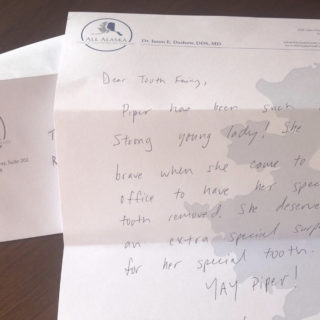 ALL ALASKA
Dr. Jason E. Dashow, DDS, MD
Dear Tooth Fairy,
Piper has been such
strong young lady! She
brave when she came to
office to have her spec
tooth removed. She deserve
an extra special surp
for her special tooth.
YAY Piper!
Suite 202
T
R